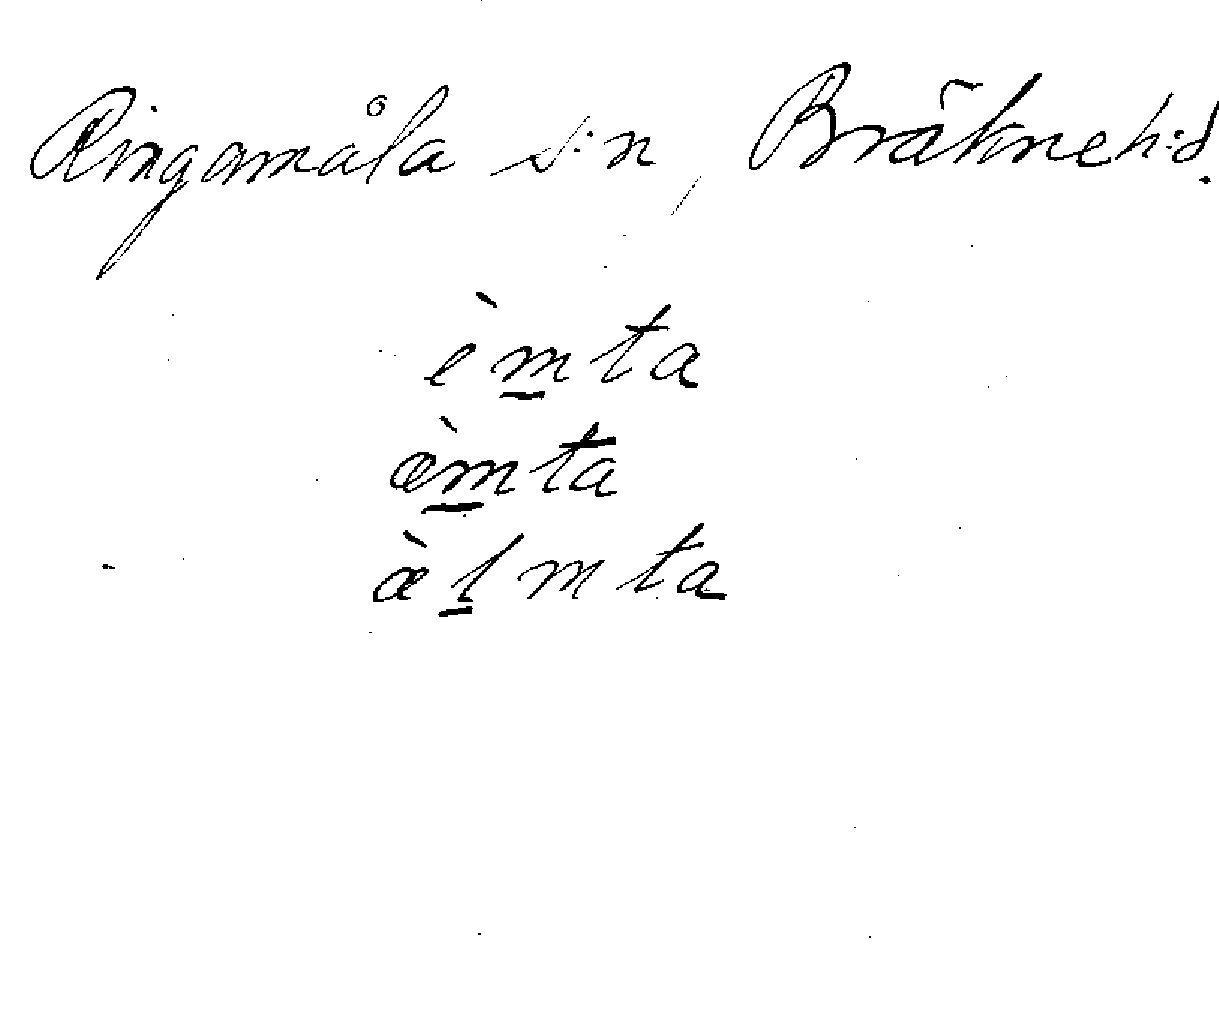 Ringamåla s:n, Bräkne h:d.
èm̲ta
æ̀m̲ta
æ̀l̲mta